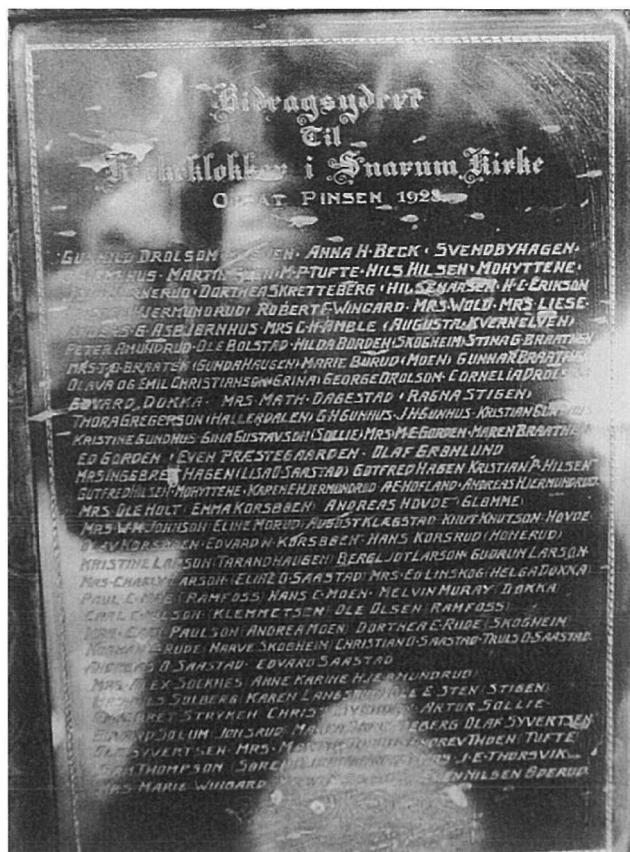 Bidragsydere
Til
Kirkeklokker i Snarum Kirke
PINSEN 1928
GUNHILD DROLSON ANNA H. BECK · SVENDBYHAGEN ·
MARTIN M·P·TUFTE · HILS HILSEN · MOHYTTENE ·
DORTHEA SKRETTEBERG · H·C·ERIKSON
HJERMUNDRUD) ROBERT E·WINGARD · MRS·WOLD · MRS·LIESE·
G·ASBJØRNHUS · MRS C·H·AMBLE (AUGUSTA KVERNELVEN)
PETER AMUNDRUD · OLE BOLSTAD · HILDA BORDEN (SKOGHEIM) STINA G·BRAATHEN
MRS·T·O·BRAATEN (GUNDA HAUGEN) MARIE BURUD (MOEN) GUNNAR BRAATHEN
OLAVA OG EMIL CHRISTIANSON (GRINA) GEORGE DROLSON · CORNELIA DROLSON
EDVARD DOKKA · MRS·MATH·DAGESTAD (RAGNA STIGEN)
THORA GREGERSON (HALLERDALEN) G·H·GUNHUS · J·H·GUNHUS · KRISTIAN GUNHUS
KRISTINE GUNDHUS · GINA GUSTAVSON (SOLLIE) MRS·M·E·GORDEN · MAREN BRAATHEN
ED GORDEN (EVEN PRÆSTEGAARDEN · OLAF GRØHLUND
MRS INGEBRET HAGEN (LISA O·SAASTAD) GOTFRED HAGEN KRISTIAN P·HILSEN
GUTFRED HILSEN · MOHYTTENE · KAREN E HJERMUNDRUD A·E·HOFLAND · ANDREAS HJERMUNDRUD
MRS·OLE HOLT (EMMA KORSBØEN) ANDREAS HOVDE GLOMME ·
MRS·W·M·JOHNSON (ELINE MORUD) AUGUST KLÆGSTAD KNUT KNUTSON · HOVDE
KORSBØEN · EDVARD N·KORSBØEN · HANS KORSRUD (MOHERUD)
KRISTINE LARSON (TARANDHAUGEN) BERGLJOT LARSON · GUDRUN LARSON ·
MRS·CHARLY LARSON (ELINE O·SAASTAD) MRS·ED LINSKOG (HELGA DOKKA)
PAUL C·MOE (RAMFOSS) HANS C·MOEN · MELVIN MURAY (DOKKA)
CARL E·NELSON (KLEMMETSEN) OLE OLSEN (RAMFOSS)
MRS·CARL PAULSON (ANDREA MOEN) DORTHEA E·RUDE (SKOGHEIM)
NORMAN RUDE (NARVE SKOGHEIM) CHRISTIAN O·SAASTAD · TRULS O·SAASTAD
ANDREAS O·SAASTAD · EDVARD SAASTAD
MRS·ALEX SOCKNES (ANNE KARINE HJERMUNDRUD)
SOLBERG (KAREN OLE E STEN (STIGEN)
MARGARET STRYKEN CHRIST ARTUR SOLLIE ·
EDVARD SOLUM JONSRUD OLAF SYVERTSEN
SYVERTSEN · MRS·M THOEN (TUFTE
SAM THOMPSON (SØREN J·E·THORSVIK
MRS MARIE WINGARD NILSEN ØDERUD